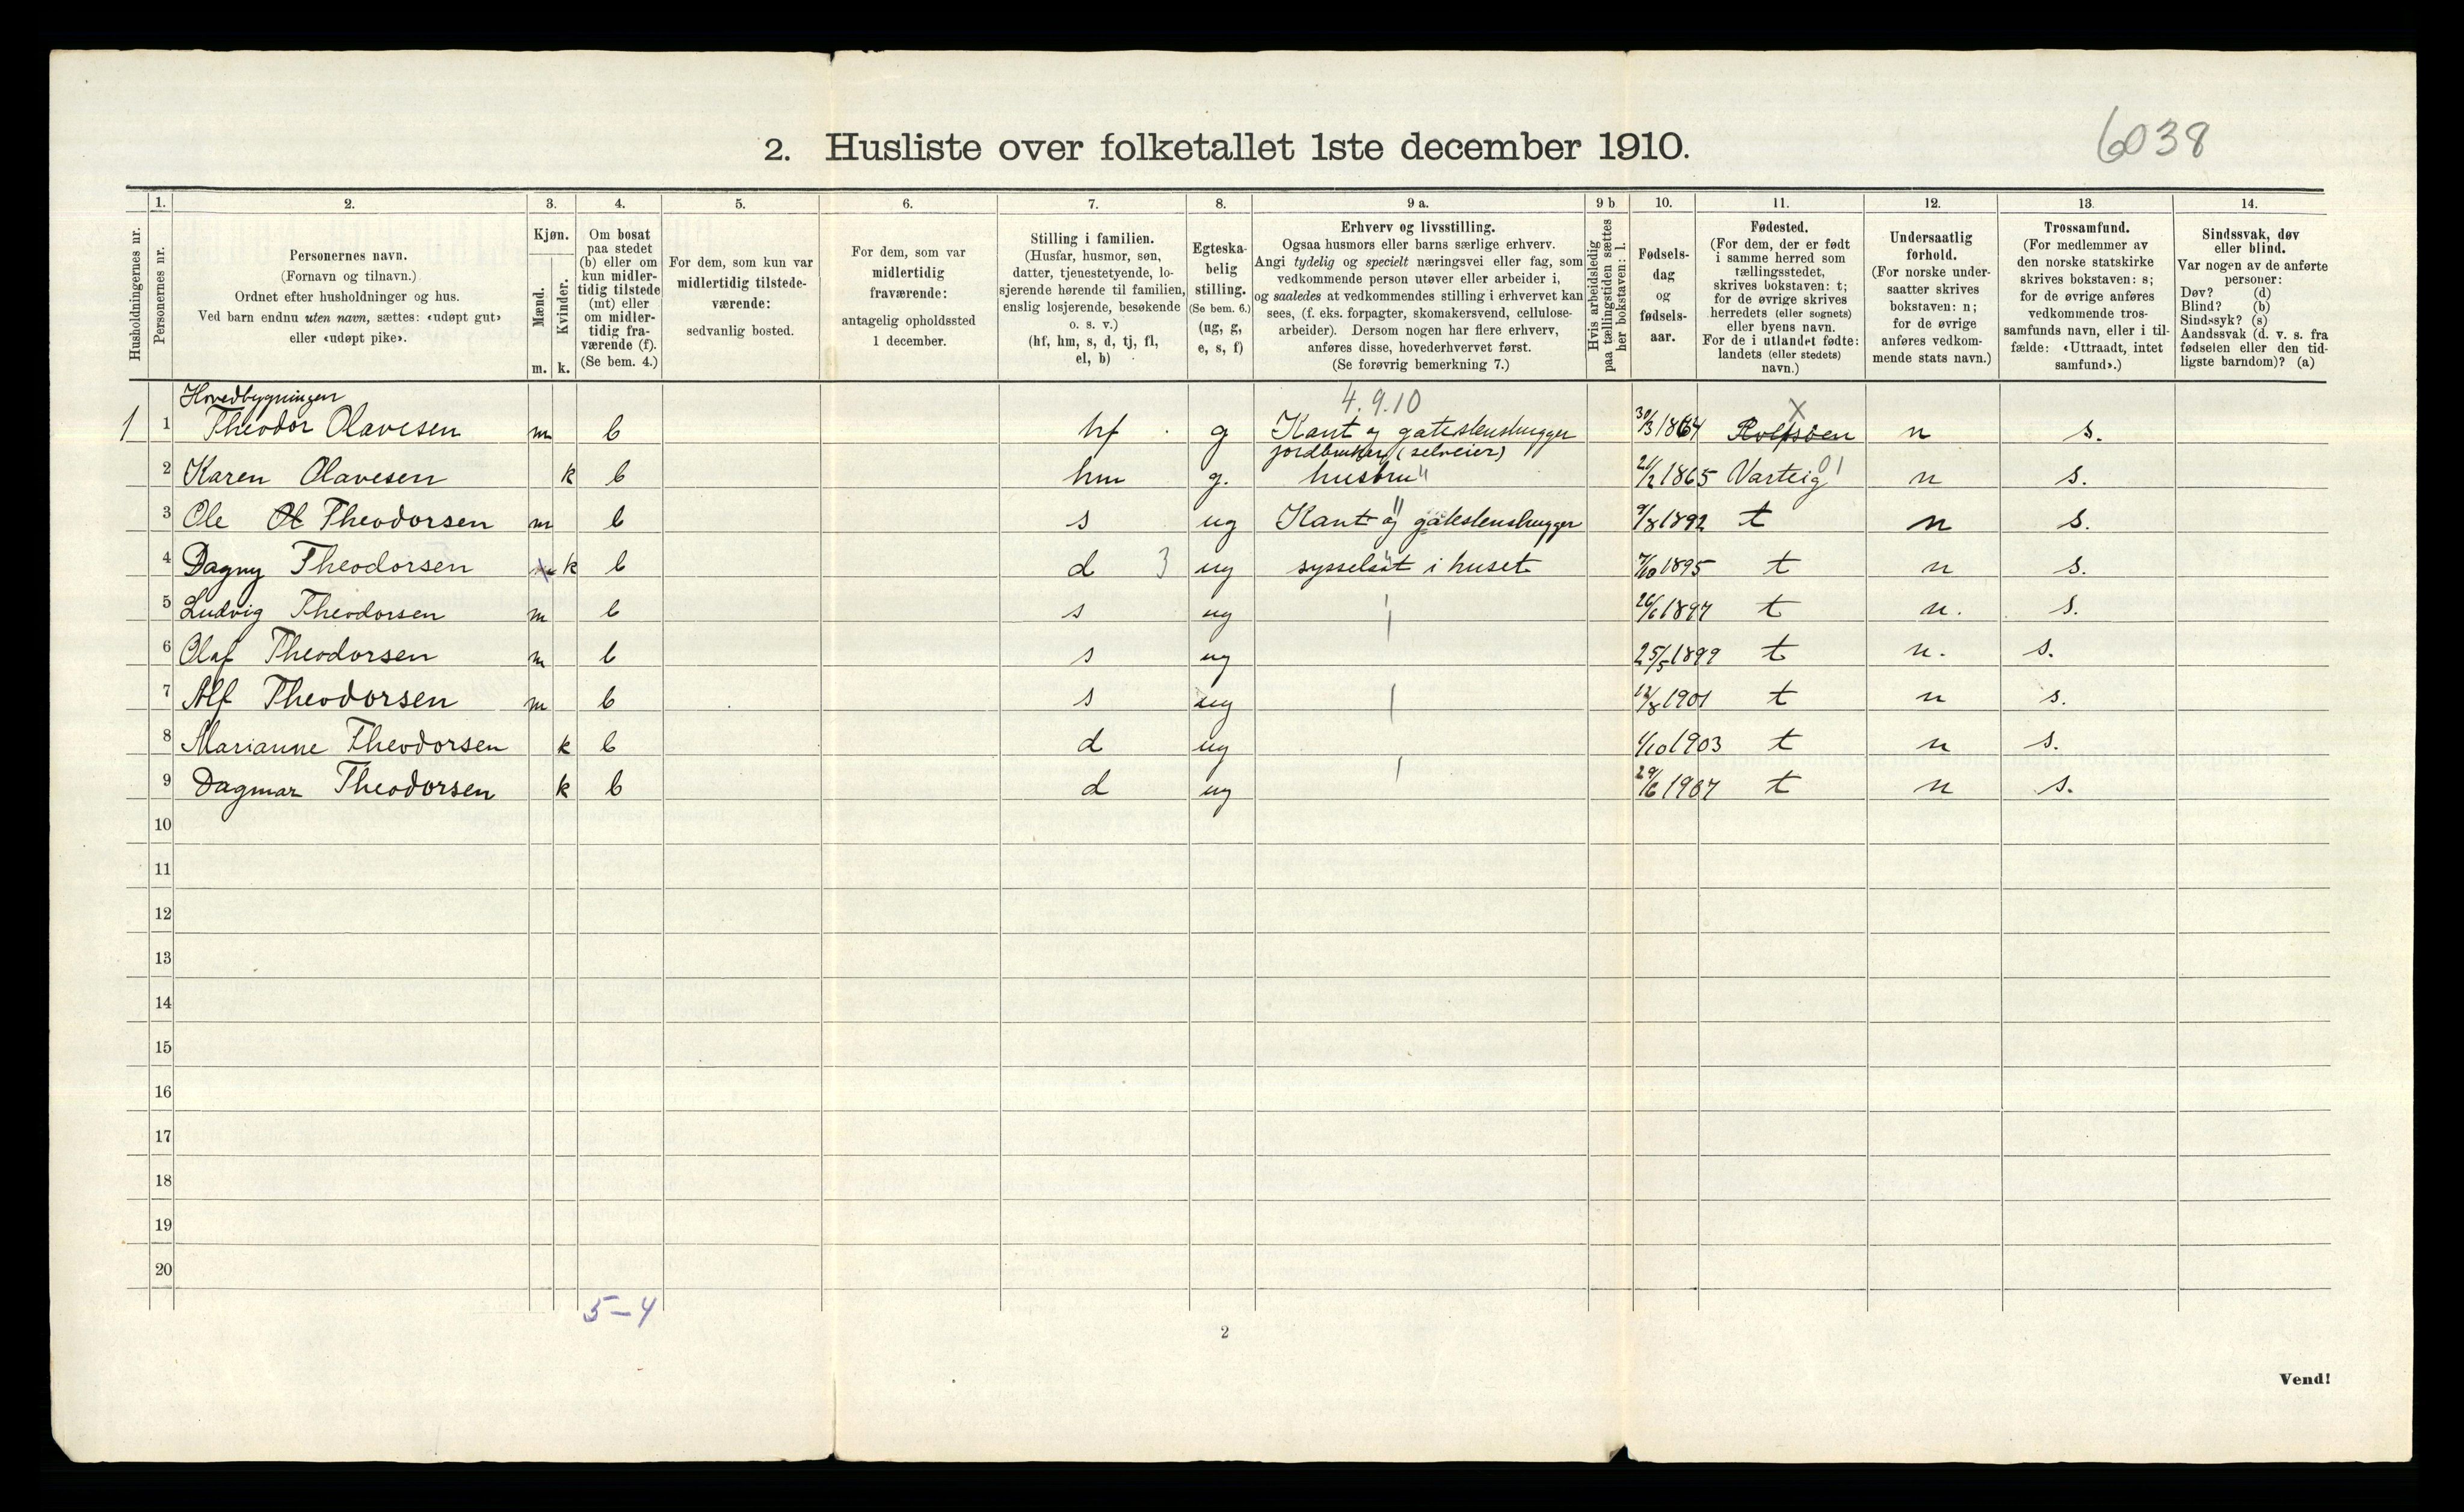 6038
2. Husliste over folketallet 1ste december 1910.
Husholdningernes nr.
1.
Personernes nr.
2.
Personernes navn.
(Fornavn og tilnavn.)
Ordnet efter husholdninger og hus.
Ved barn endnu uten navn, sættes: «udøpt gut»
eller «udøpt pike».
3.
Kjøn.
Mænd.
Kvinder.
m. k.
4.
Om bosat
paa stedet
(b) eller om
kun midler-
tidig tilstede
(mt) eller
om midler-
tidig fra-
værende (f).
(Se bem. 4.)
5.
For dem, som kun var
midlertidig tilstede-
værende:
sedvanlig bosted.
6.
For dem, som var
midlertidig
fraværende:
antagelig opholdssted
1 december.
7.
Stilling i familien.
(Husfar, husmor, søn,
datter, tjenestetyende, lo-
sjerende hørende til familien,
enslig losjerende, besøkende
o. s. v.)
(hf, hm, s, d, tj, fl,
el, b)
8.
Egteska-
belig
stilling.
(Se bem. 6.)
(ug, g,
e, s, f)
9 a.
Erhverv og livsstilling.
Ogsaa husmors eller barns særlige erhverv.
Angi tydelig og specielt næringsvei eller fag, som
vedkommende person utøver eller arbeider i,
og saaledes at vedkommendes stilling i erhvervet kan
sees, (f. eks. forpagter, skomakersvend, cellulose-
arbeider). Dersom nogen har flere erhverv,
anføres disse, hovederhvervet først.
(Se forøvrig bemerkning 7.)
9 b
Hvis arbeidsledig
paa tællingstiden sættes
her bokstaven: l.
10.
Fødsels-
dag
og
fødsels-
aar.
11.
Fødested.
(For dem, der er født
i samme herred som
tællingsstedet,
skrives bokstaven: t;
for de øvrige skrives
herredets (eller sognets)
eller byens navn.
For de i utlandet fødte:
landets (eller stedets)
navn.)
12.
Undersaatlig
forhold.
(For norske under-
saatter skrives
bokstaven: n;
for de øvrige
anføres vedkom-
mende stats navn.)
13.
Trossamfund.
(For medlemmer av
den norske statskirke
skrives bokstaven: s;
for de øvrige anføres
vedkommende tros-
samfunds navn, eller i til-
fælde: «Uttraadt, intet
samfund».)
14.
Sindssvak, døv
eller blind.
Var nogen av de anførte
personer:
Døv? (d)
Blind? (b)
Sindssyk? (s)
Aandssvak (d. v. s. fra
fødselen eller den tid-
ligste barndom)? (a)
Hovedbygningen 4.9.10 X
1 1 Theodor Olavesen m b hf g Kant og gatestenshugger 30/3 1864 Rolfsøen n s.
jordbruker (selveier)
2 Karen Olavesen k b hm g. hustru 1865 Varteig 01 n s.
3 Ole Ol Theodorsen m b s ug Kant og gatestenshugger 9/8 1892 t n s.
4 Dagny Theodorsen k b d 3 ug sysselsat i huset 1895 t n s.
5 Ludvig Theodorsen m b s ug 26/6 1897 t n. s.
6 Olaf Theodorsen m b s ug 25/5 1899 t n. s.
7 Alf Theodorsen m b s ug 12/8 1901 t n s.
8 Marianne Theodorsen k b d ug 1903 t n s.
9 Dagmar Theodorsen k b d ug 29/6 1907 t n s.
10
11
12
13
14
15
16
17
18
19
20
5-4
2
Vend!